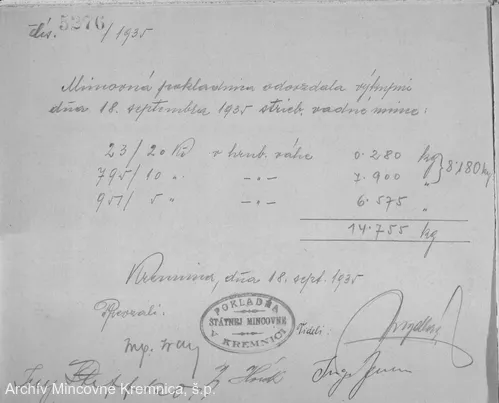 čís. 5276/1935
Mincovná pokladnica odovzdala výhrymi
dňa 18. septembra 1935 strieb. vadné mince:
23/ 20 Kč v hrub. váhe 0.280 kg
795/ 10 „ –„– 7.900 „ } 8.180 kg
951/ 5 „ –„– 6.575 „
14.755 kg
Kremnica, dňa 18. sept. 1935
Prevzali:
POKLADŇA
ŠTÁTNEJ MINCOVNE
V KREMNICI
Videli:
Ing.
Ing.
Ing.
Archív Mincovne Kremnica, š.p.